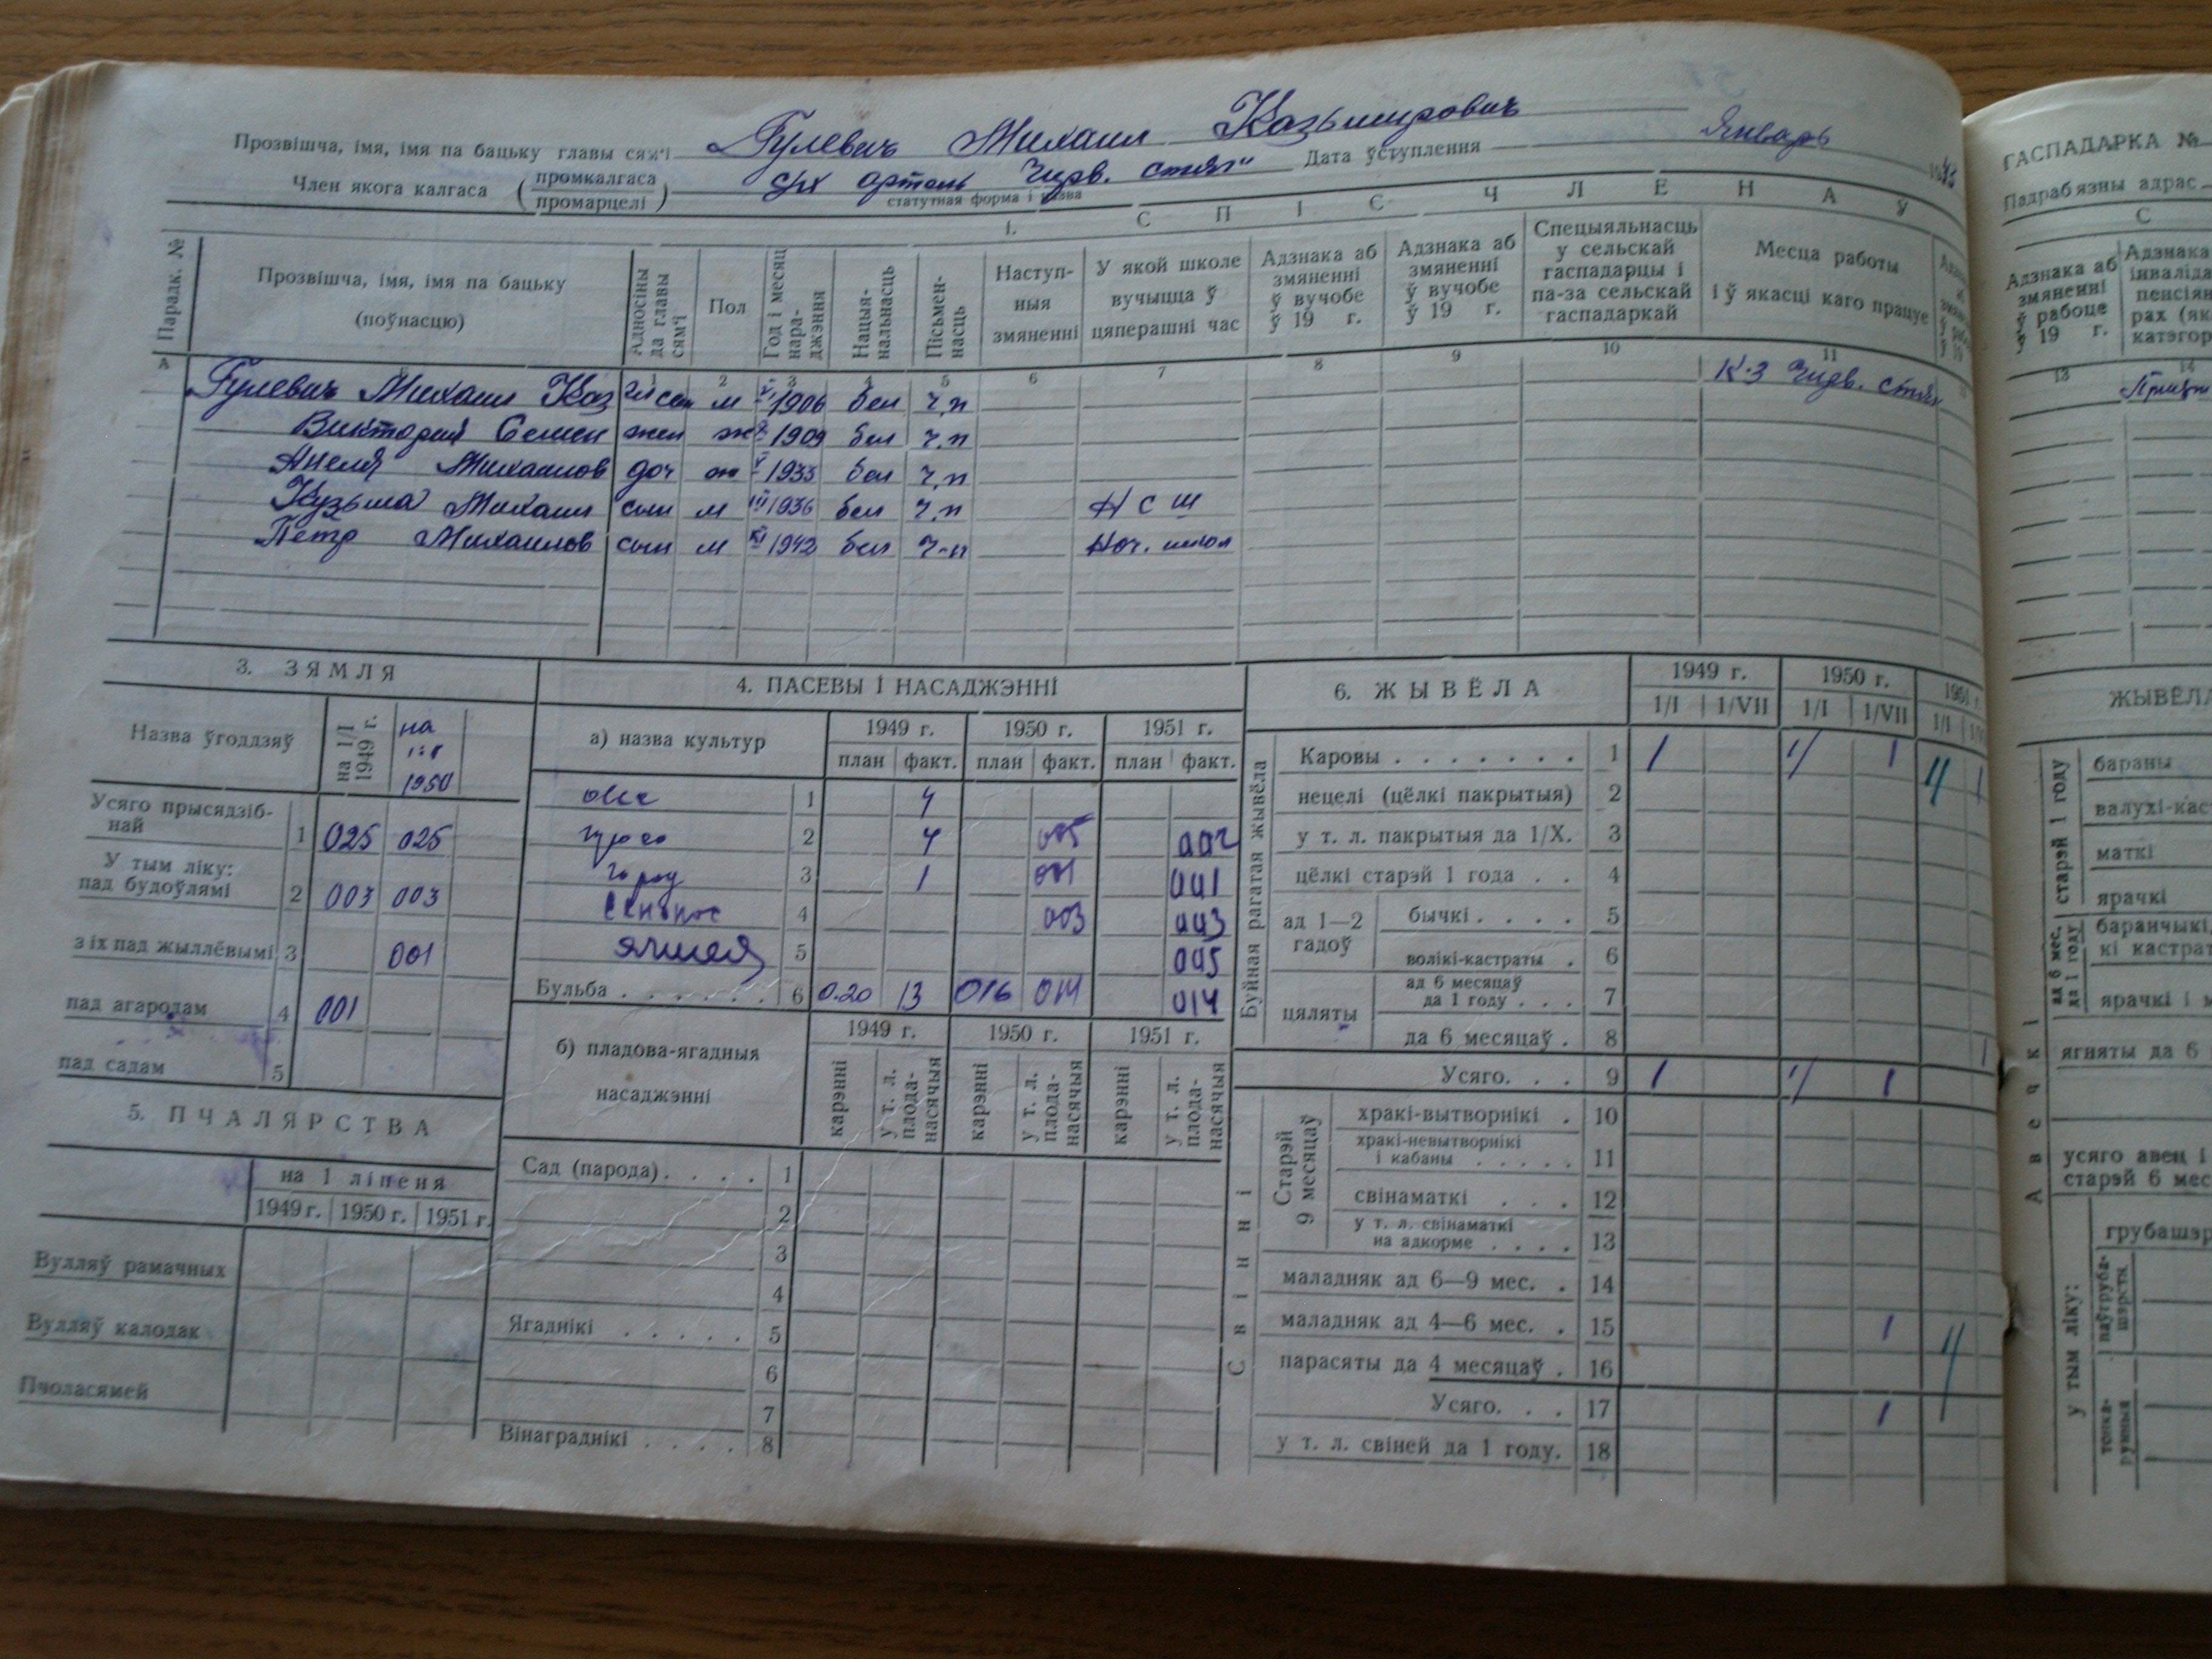 Прозвішча, імя, імя па бацьку главы сям'і Гулевич Михаил Казьмирович
Член якога калгаса (промкалгаса / промарцелі) с/х артель Чирв. стяг" Дата ўступлення Январь
статутная форма і назва
1. С П І С Ч Л Е Н А Ў
Парадк. № | Прозвішча, імя, імя па бацьку (поўнасцю) | Адносіны да главы сям'і | Пол | Год і месяц нараджэння | Нацыянальнасць | Пісьменнасць | Наступныя змяненні | У якой школе вучыцца ў цяперашні час | Адзнака аб змяненні ў вучобе ў 19 г. | Адзнака аб змяненні ў вучобе ў 19 г. | Спецыяльнасць у сельскай гаспадарцы і па-за сельскай гаспадаркай | Месца работы і ў якасці каго працуе
А 1 2 3 4 5 6 7 8 9 10 11
Гулевич Михаил Каз м 1906 бел ч.п К-з Чирв. стяг
Виктория Семен жен ж 1909 бел ч.п
Анеля Михаилов доч ж V 1933 бел ч.п
Кузьма Михаил сын м III 1936 бел ч.п Н С Ш
Петр Михаилов сын м XI 1942 бел ч-п Нач. школ
3. ЗЯМЛЯ
Назва ўгоддзяў | на 1/I 1949 г. | на 1950
Усяго прысядзібнай 1 025 025
У тым ліку: пад будоўлямі 2 003 003
з іх пад жыллёвымі 3 001
пад агародам 4 001
пад садам 5
5. ПЧАЛЯРСТВА
на 1 ліпеня
1949 г. 1950 г. 1951 г.
Вулляў рамачных
Вулляў калодак
Пчоласямей
4. ПАСЕВЫ І НАСАДЖЭННІ
а) назва культур | 1949 г. | 1950 г. | 1951 г.
план факт. план факт. план факт.
1 4
просо 2 4 005 002
город 3 1 001 001
сенокос 4 003 003
ячмея 5 005
Бульба 6 0.20 13 016 014 014
б) пладова-ягадныя насаджэнні | 1949 г. | 1950 г. | 1951 г.
карэнні у т. л. плоданасячыя карэнні у т. л. плоданасячыя карэнні у т. л. плоданасячыя
Сад (парода) 1
2
3
4
Ягаднікі 5
6
7
Вінаграднікі 8
6. ЖЫВЁЛА | 1949 г. | 1950 г. | 1951 г.
1/I 1/VII 1/I 1/VII 1/I
Буйная рагатая жывёла
Каровы 1 1 1 1 1
нецелі (цёлкі пакрытыя) 2
у т. л. пакрытыя да 1/X. 3
цёлкі старэй 1 года 4
ад 1—2 гадоў
бычкі 5
волікі-кастраты 6
цяляты
ад 6 месяцаў да 1 году 7
да 6 месяцаў 8 1
Усяго 9 1 1 1
Свінні
Старэй 9 месяцаў
хракі-вытворнікі 10
хракі-невытворнікі і кабаны 11
свінаматкі 12
у т. л. свінаматкі на адкорме 13
маладняк ад 6—9 мес. 14
маладняк ад 4—6 мес. 15 1
парасяты да 4 месяцаў 16
Усяго 17 1
у т. л. свіней да 1 году. 18
ГАСПАДАРКА №
Падрабязны адрас
С
Адзнака аб змяненні ў рабоце ў 19 г.
Адзнака
13 14
ЖЫВЁЛА
Авечкі
старэй 1 году
бараны
маткі
ярачкі
ад 6 мес. да 1 году
баранчыкі,
ярачкі і
ягняты да 6
усяго авец і
старэй 6 мес
у тым ліку: